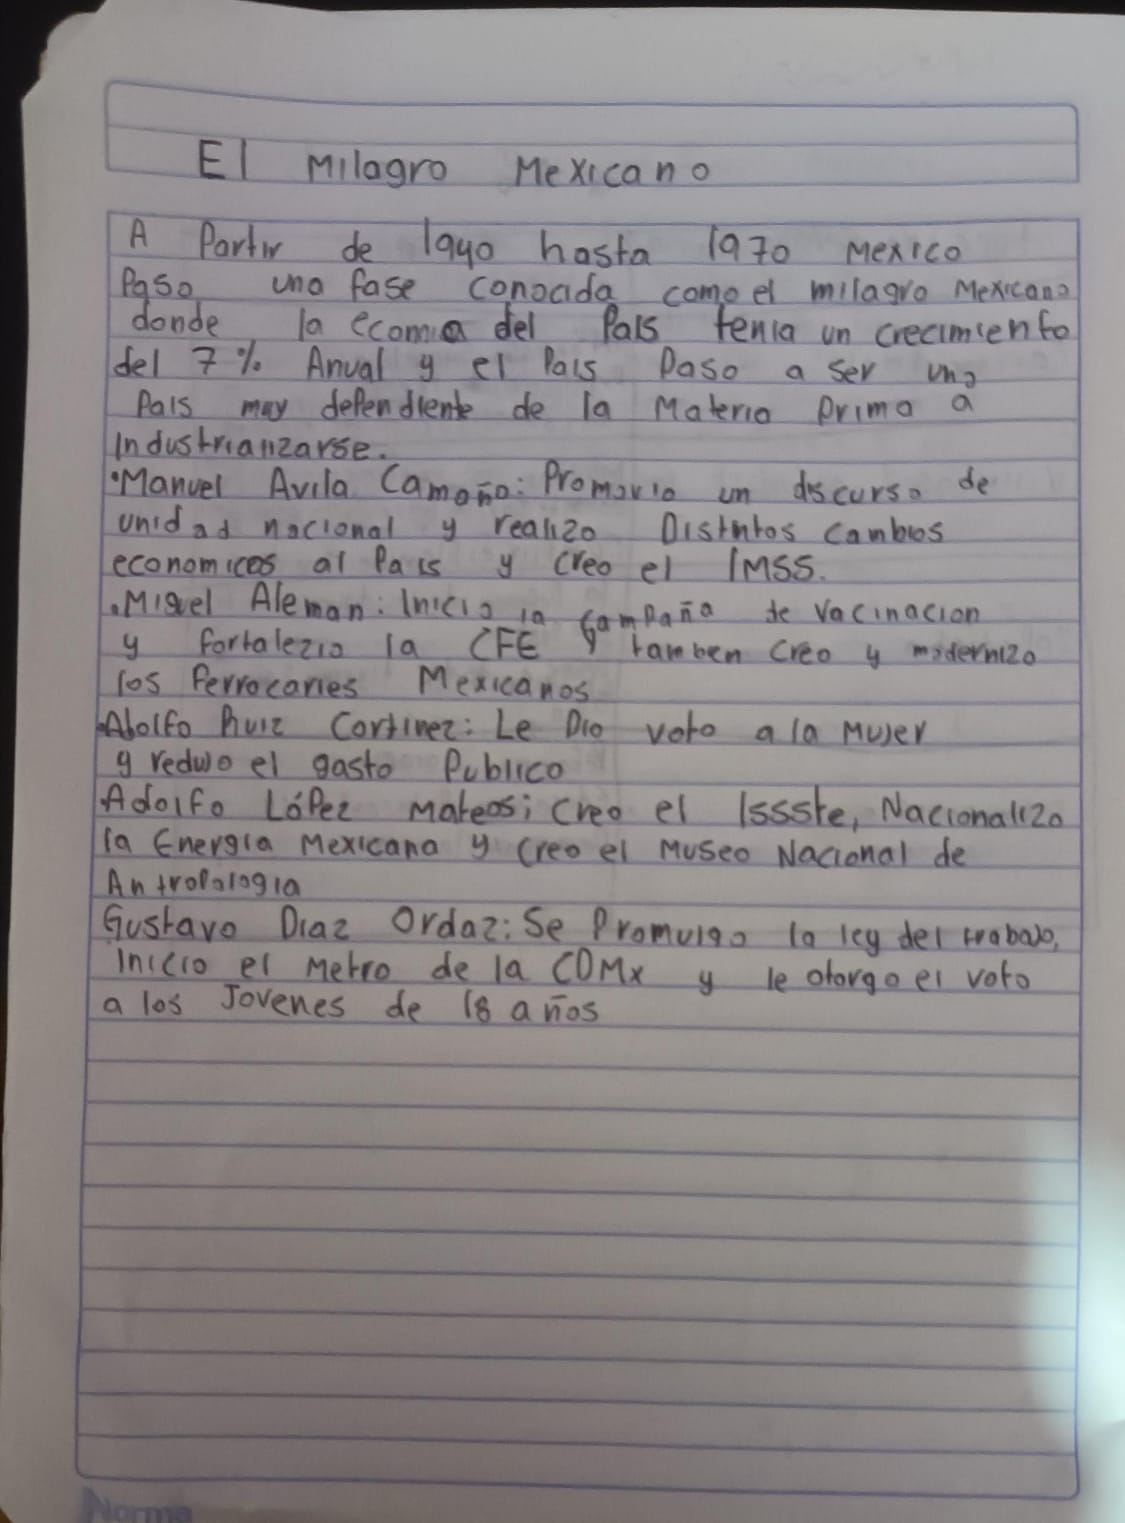 El Milagro Mexicano
A Partir de 1940 hasta 1970 Mexico
Paso una fase conocida como el milagro Mexicano
donde la ecomia del Pais tenia un crecimiento
del 7% Anual y el Pais Paso a ser una
Pais muy dependiente de la Materia Prima a
Industrializarse.
•Manuel Avila Camaño: Promovio un discurso de
unidad nacional y realizo Distintos Cambios
economicos al Pais y Creo el IMSS.
•Miguel Aleman: Inicio la Campaña de Vacinacion
y fortalezio la CFE y tamben Creo y modernizo
los Ferrocaries Mexicanos
•Adolfo Ruiz Cortinez: Le Dio voto a la Mujer
y redujo el gasto Publico
•Adolfo López Mateos; Creo el Issste, Nacionalizo
la Energia Mexicana y Creo el Museo Nacional de
Antropologia
Gustavo Diaz Ordaz: Se Promulgo la ley del trabajo,
Inicio el Metro de la CDMx y le otorgo el voto
a los Jovenes de 18 años
Norma